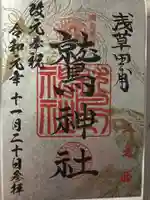 浅草田甫
鷲神社
改元奉祝
令和元年十一月二十日参拝